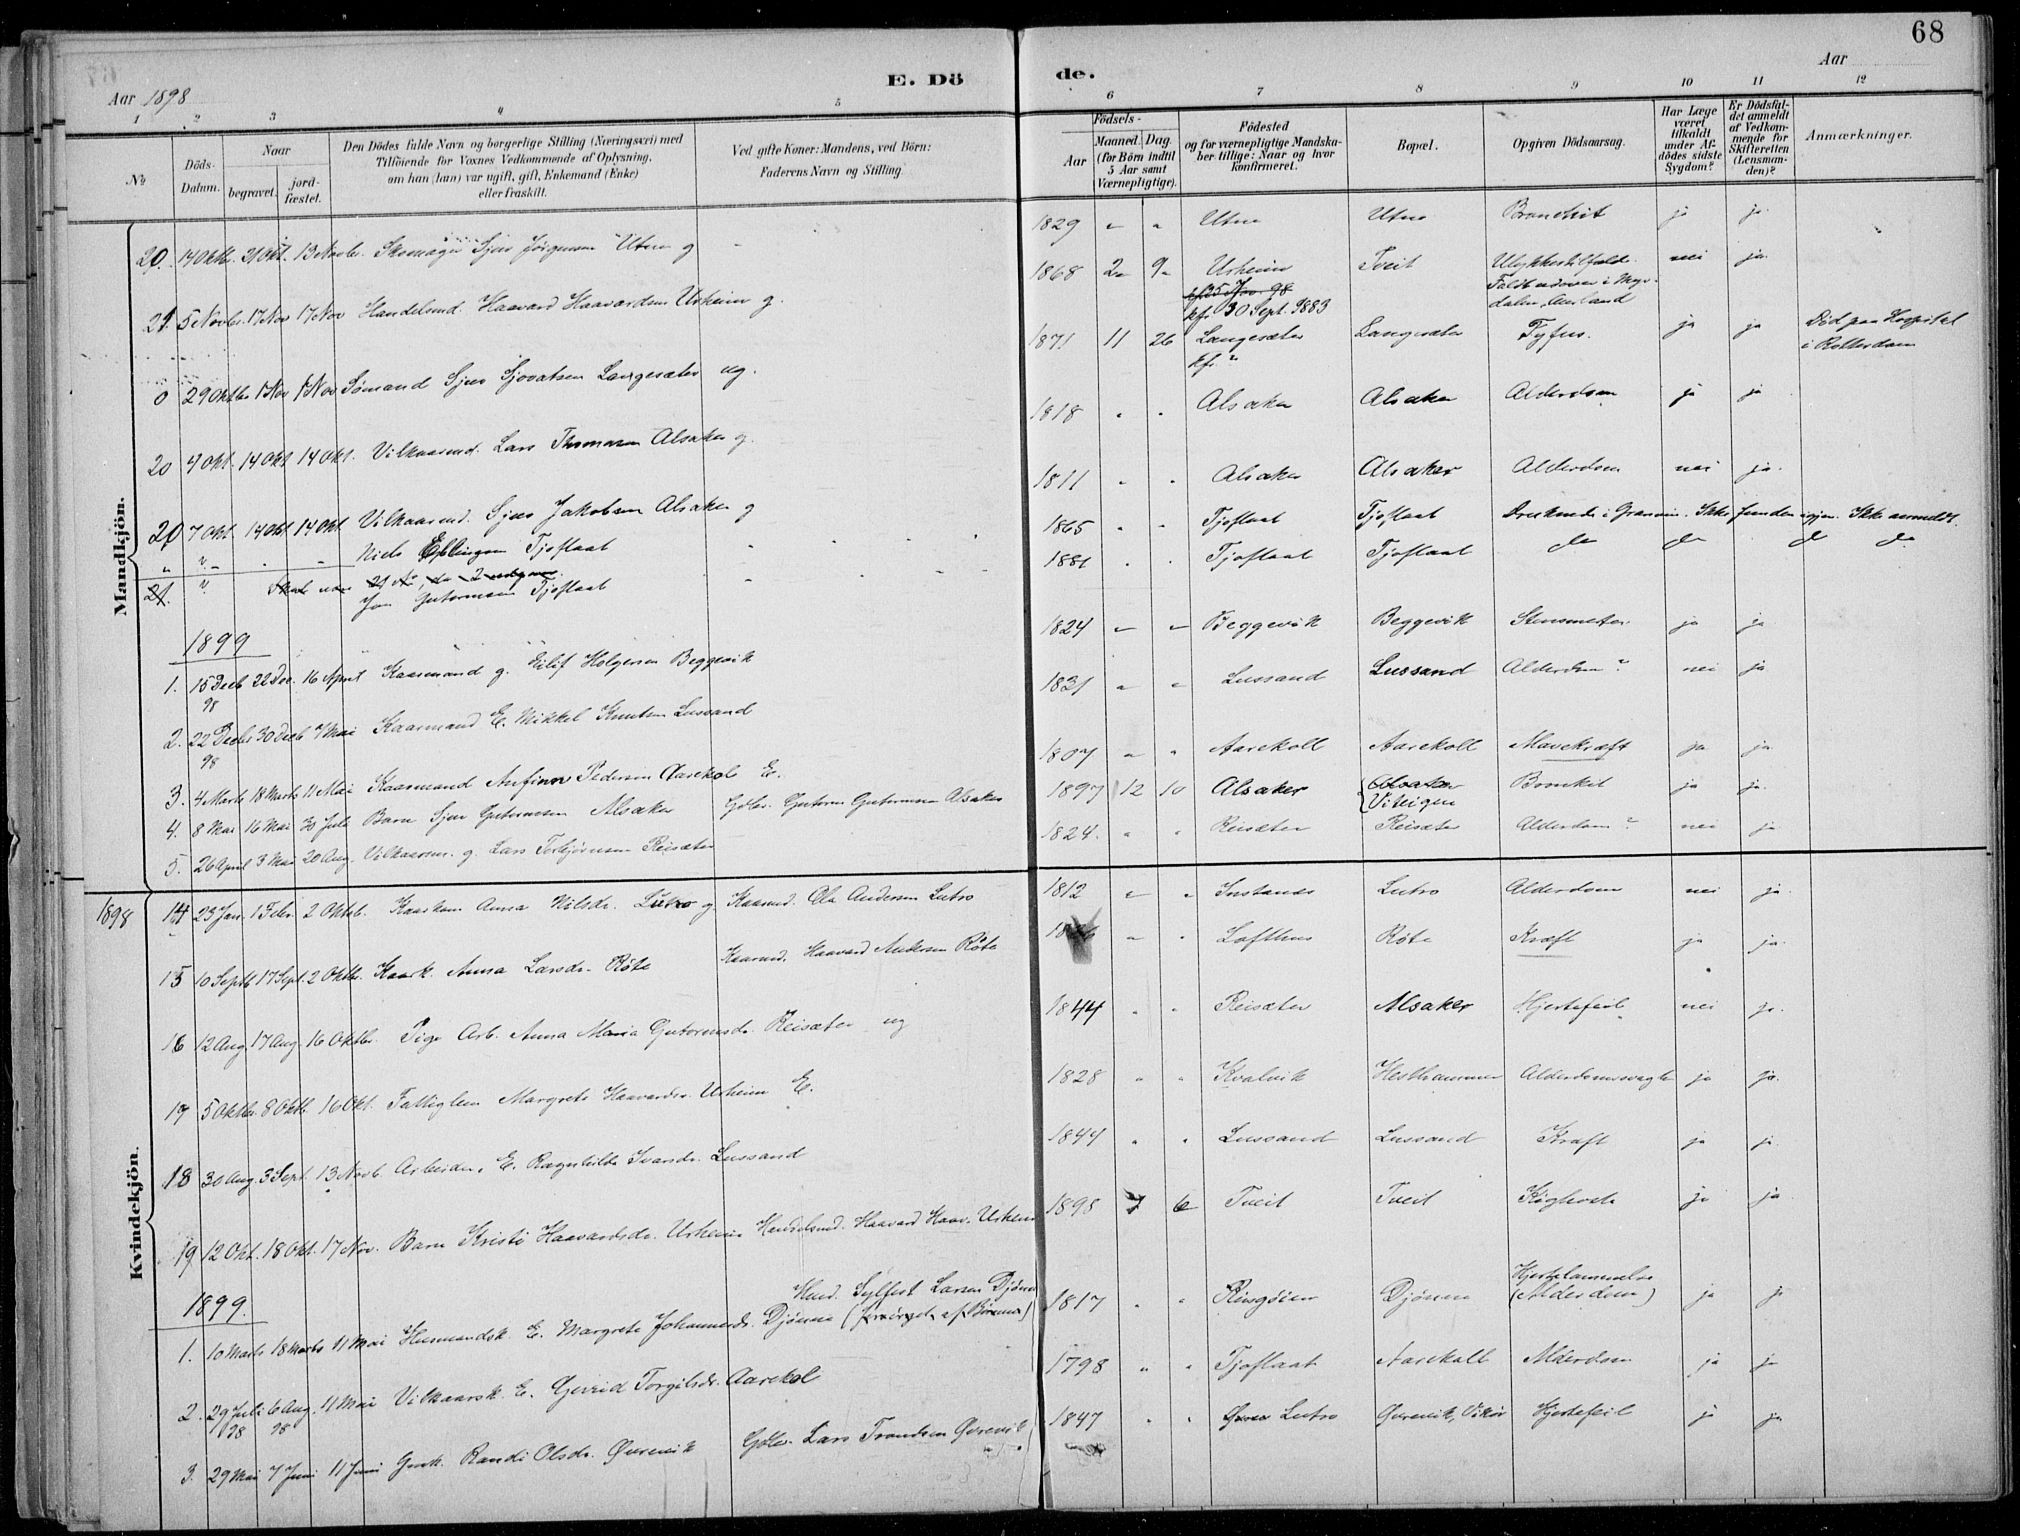 68
E. Dö de.
Aar 1898
Aar
1 2 3 4 5 6 7 8 9 10 11 12
No
Döds-Datum.
Naar
begravet.
jord-fæstet.
Den Dödes fulde Navn og borgerlige Stilling (Næringsvei) med
Tilföiende for Voxnes Vedkommende af Oplysning,
om han (hun) var ugift, gift, Enkemand (Enke)
eller fraskilt.
Ved gifte Koner: Mandens, ved Börn:
Faderens Navn og Stilling.
Födsels-
Aar
Maaned. Dag.
(for Börn indtil
5 Aar samt
Værnepligtige).
Födested
og for værnepligtige Mandska-
ber tillige: Naar og hvor
konfirmeret.
Bopæl.
Opgiven Dödsaarsag.
Har Læge
været
tilkaldt
under Af-
dödes sidste
Sygdom?
Er Dödsfal-
det anmeldt
af Vedkom-
mende for
Skifteretten
(Lensman-
den)?
Anmærkninger.
Mandkjön.
20. 14 Oktb. 21 Okt. 13 Novbr. Skomager Sjur Jørgensen Utne g - 1829 " " Utne Utne Bronchit ja ja.
21. 5 Novbr. 17 Nov 17 Nov Handelsmd. Haavard Haavardsen Urheim g. 1868 2 9 Urheim Tveit Ulykkestilfælde. nei ja.
kfr 30 Sept. 1883 dalen, Aurland
0 29 Oktbr 1 Nov 1 Nov Sømand Sjur Sjovatsen Langesæter ug. 1871 11 26 Langesæter Langesæter Tyfus. ja ja Død paa Hospital
kfr. ? i Rotterdam
20 4 Okt. 14 Okt 14 Okt. Vilkaarmd. Lars Thomasen Alsaker g. 1818 " " Alsaker Alsaker Alderdom ja ja
20 7 Okt 14 Okt 14 Okt. Vilkaarmd. Sjur Jakobsen Alsaker g 1811 " " Alsaker Alsaker Alderdom nei ja.
" " Niels Ellingsen Tjoflaat 1865 " " Tjoflaat Tjoflaat Druknede i Granvin. Ikke funden igjen. Ikke anmeldt.
21. " Jon Gutormsen Tjoflaat 1881 " " Tjoflaat Tjoflaat do do do do
1899
1. 15 Decb 98 22 Dec. 16 April Kaarmand g. Eilif Holgersen Beggevik 1824 " " Beggevik Beggevik Stensmerter ja ja
2. 22 Decbr 98 30 Decb 7 Mai Kaarmand E. Mikkel Knutsen Lussand 1831 " " Lussand Lussand Alderdom? nei ja
3. 4 Marts 18 Marts 11 Mai Kaarmand Anfinn Pedersen Aarekol E. 1807 " " Aarekoll Aarekoll Mavekræft ja ja
4. 8 Mai 16 Mai 30 Juli Barn Sjur Gutormsen Alsaker Gdbr. Gutorm Gutormsen Alsaker 1897 12 10 Alsaker Alsaker Bronkit ja ja.
Viteigen
5. 26 April 3 Mai 20 Aug. Vilkaarm. g. Lars Torbjørnsen Reisæter 1824. " " Reisæter Reisæter Alderdom? nei ja
Kvindekjön.
1898 14 23 Jan. 1 Febr. 2 Oktob. Kaarkone Anna Nilsdr. Lutro g Kaarmd. Ola Andersen Lutro 1812 " " Instanes Lutro Alderdom nei ja.
15 10 Septb 17 Sept. 2 Oktbr. Kaark. Anna Larsdr. Røte Kaarmd. Haavard Andersen Røte " " Lofthus Røte Kræft ja ja.
16 12 Aug. 17 Aug. 16 Oktbr. Pige Arb. Anna Maria Gutormsdr. Reisæter ug 1844 " " Reisæter Alsaker Hjertefeil nei ja.
17 5 Oktbr. 8 Oktb. 16 Okt. Fattiglem Margrete Haavardsdr. Urheim E. 1828 " " Kvalvik Hesthammer Alderdomssvaghed ja ja.
18 30 Aug. 3 Sept. 13 Novb. Arbeider. E. Ragnhilda Ivarsdr. Lussand 1844 " " Lussand Lussand Kræft ja ja
19 12 Okt. 18 Okt. 17 Nov. Barn Kristi Haavardsdr. Urheim Handelsmd. Haavard Haav. Urheim 1898 7 6 Tveit Tveit Kighoste ja ja
1899.
1. 10 Marts 18 Marts 11 Mai Husmandsk. E. Margrete Johannesdr. Djønne Hmd. Sylfest Larsen Djønne (forsørget af Børnene) 1817 " " Ringøien Djønne Hjertelammelse (Alderdom) ja ja
2. 29 Juli 98 6 Aug. 98 11 Mai Vilkaarsk. E. Gevrid Torgilsdr. Aarekol 1798 " " Tjoflaat Aarekoll Alderdom ja ja
3. 29 Mai 7 Juni 11 Juni Gmk. Randi Olsdr. Øvrevik Gdbr. Lars Trondsen Øvrevik 1847 " " Lutro Øvrevik, Vikør Hjertefeil ja ja